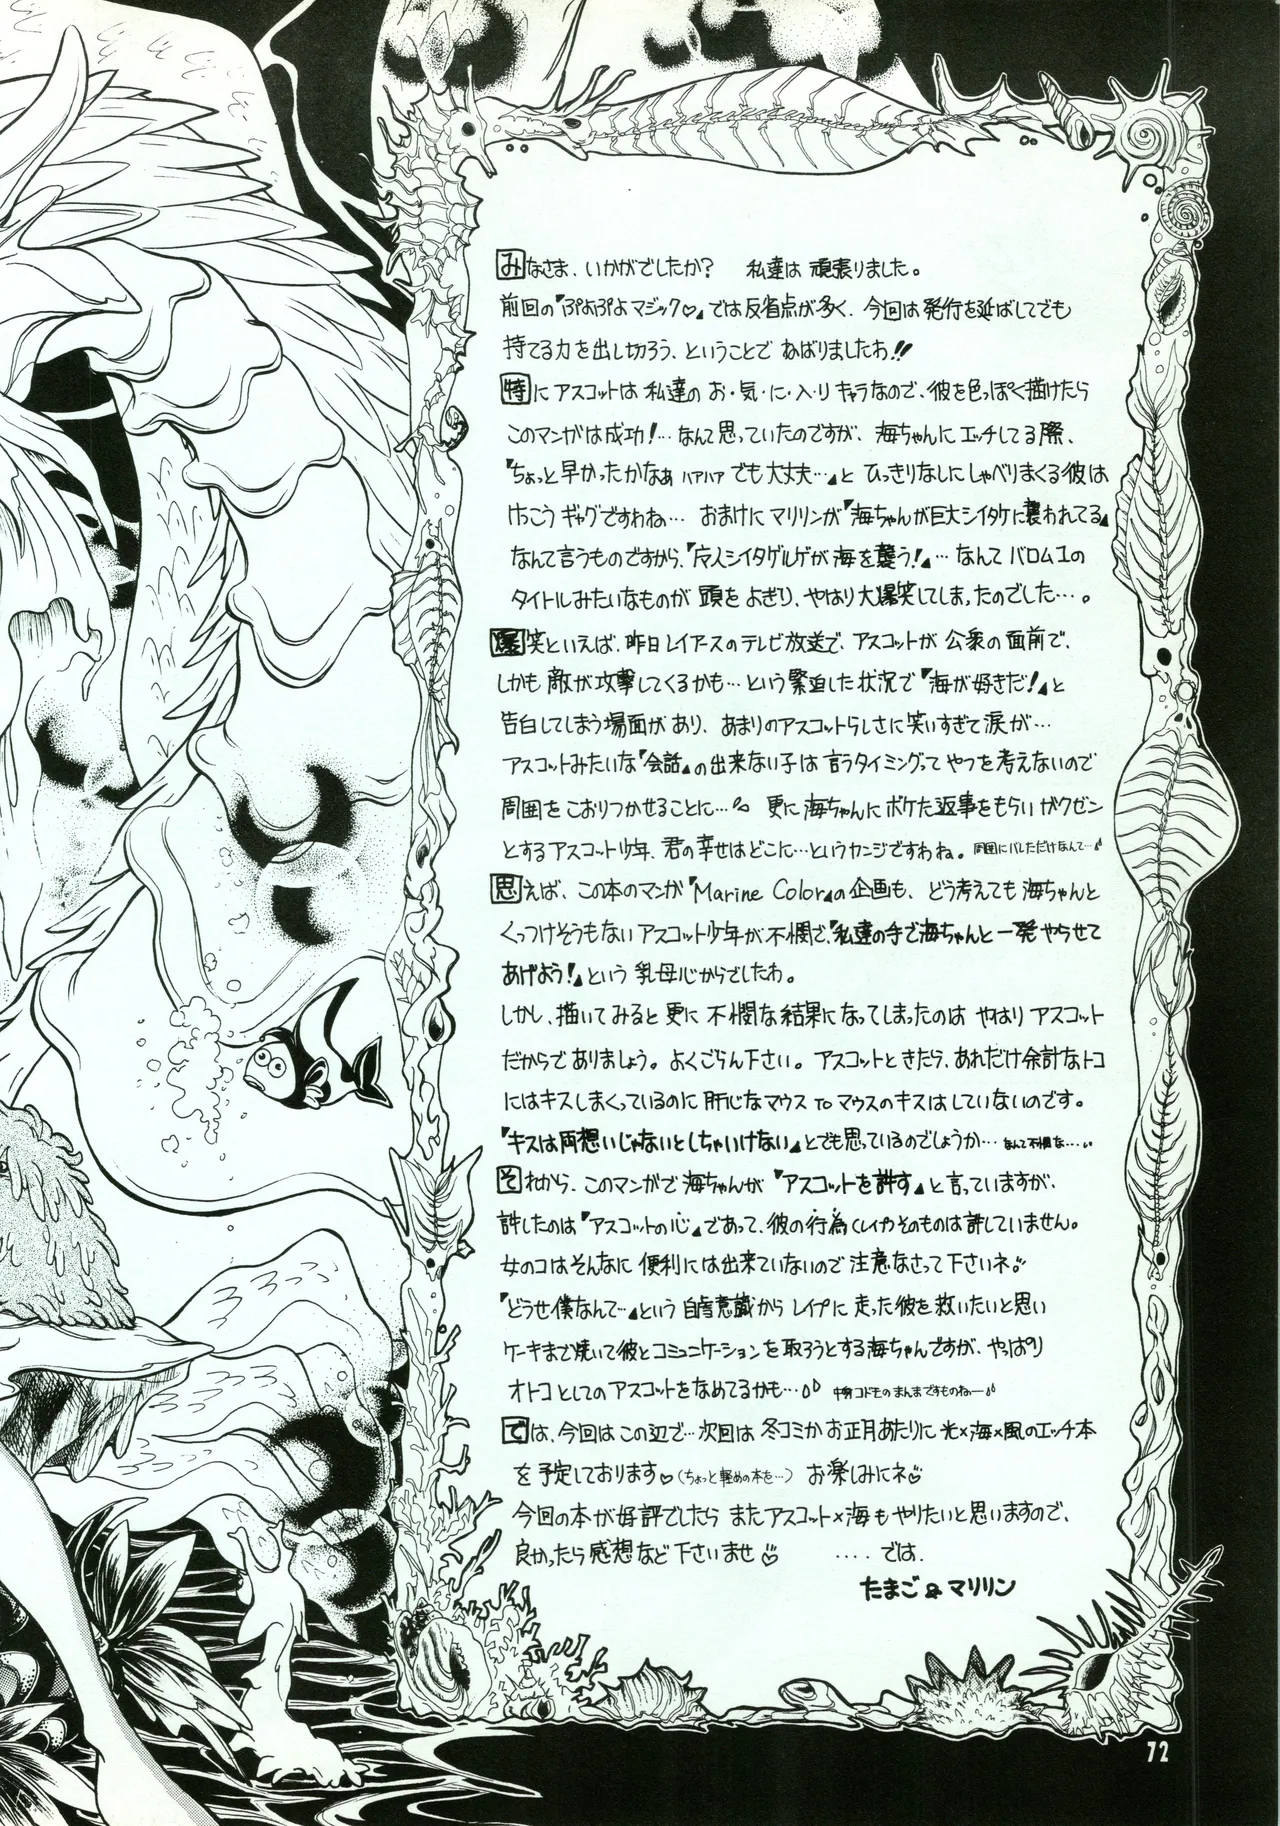 みなさま、いかがでしたか？　私達は 頑張りました。
前回の『ぷよぷよマジック♡』では反省点が多く、今回は発行を延ばしてでも
持てる力を出し切ろう、ということで ねばりましたわ!!
特にアスコットは私達の お・気・に・入・り キャラなので、彼を色っぽく描けたら
このマンガは成功！… なんて思っていたのですが、海ちゃんにエッチしてる際、
『ちょっと早かったかなぁ ハアハア でも大丈夫…』と ひっきりなしにしゃべりまくる彼は
けっこうギャグですわね… おまけにマリリンが『海ちゃんが巨大シイタケに襲われてる』
なんて言うものですから、『ドクロ人シイタゲルゲが海を襲う！』… なんてバロム1の
タイトルみたいなものが 頭をよぎり、やはり大爆笑してしまったのでした…。
爆笑といえば、昨日レイアースのテレビ放送で、アスコットが 公衆の面前で、
しかも敵が攻撃してくるかも… という緊迫した状況で『海が好きだ！』と
告白してしまう場面があり、あまりのアスコットらしさに笑いすぎて涙が…
アスコットみたいな『会話』の出来ない子は 言うタイミングってやつを考えないので
周囲をこおりつかせることに… 更に海ちゃんにボケた返事をもらいガクゼン
とするアスコット少年、君の幸せはどこに…というカンジですわね。周囲にバレただけなんて…
思えば、この本のマンガ『Marine Color』の企画も、どう考えても海ちゃんと
くっつけそうもないアスコット少年が不憫で、『私達の手で海ちゃんと一発やらせて
あげよう！』という 乳母心からでしたわ。
しかし、描いてみると更に不憫な結果になってしまったのは やはりアスコット
だからでありましょう。よくごらん下さい。アスコットときたら、あれだけ余計なトコ
にはキスしまくっているのに 肝心なマウス TO マウスのキスはしていないのです。
『キスは両想いじゃないとしちゃいけない』とでも思っているのでしょうか… なんて不憫な…
それから、このマンガで海ちゃんが『アスコットを許す』と言っていますが、
許したのは『アスコットの心』であって、彼の行為（レイプ）そのものは許していません。
女のコはそんなに便利には出来ていないので注意なさって下さいネ。
『どうせ僕なんて…』という自虐意識からレイプに走った彼を救いたいと思い
ケーキまで焼いて彼とコミュニケーションを取ろうとする海ちゃんですが、やっぱり
オトコとしてのアスコットをなめてるかも… 中身コドモのまんまですものねー
では、今回はこの辺で… 次回は冬コミかお正月あたりに 光×海×風のエッチ本
を予定しております♡（ちょっと軽めの本を…） お楽しみにネ♡
今回の本が好評でしたら またアスコット×海もやりたいと思いますので、
良かったら感想など下さいませ♡　　…. では.
たまご & マリリン
72